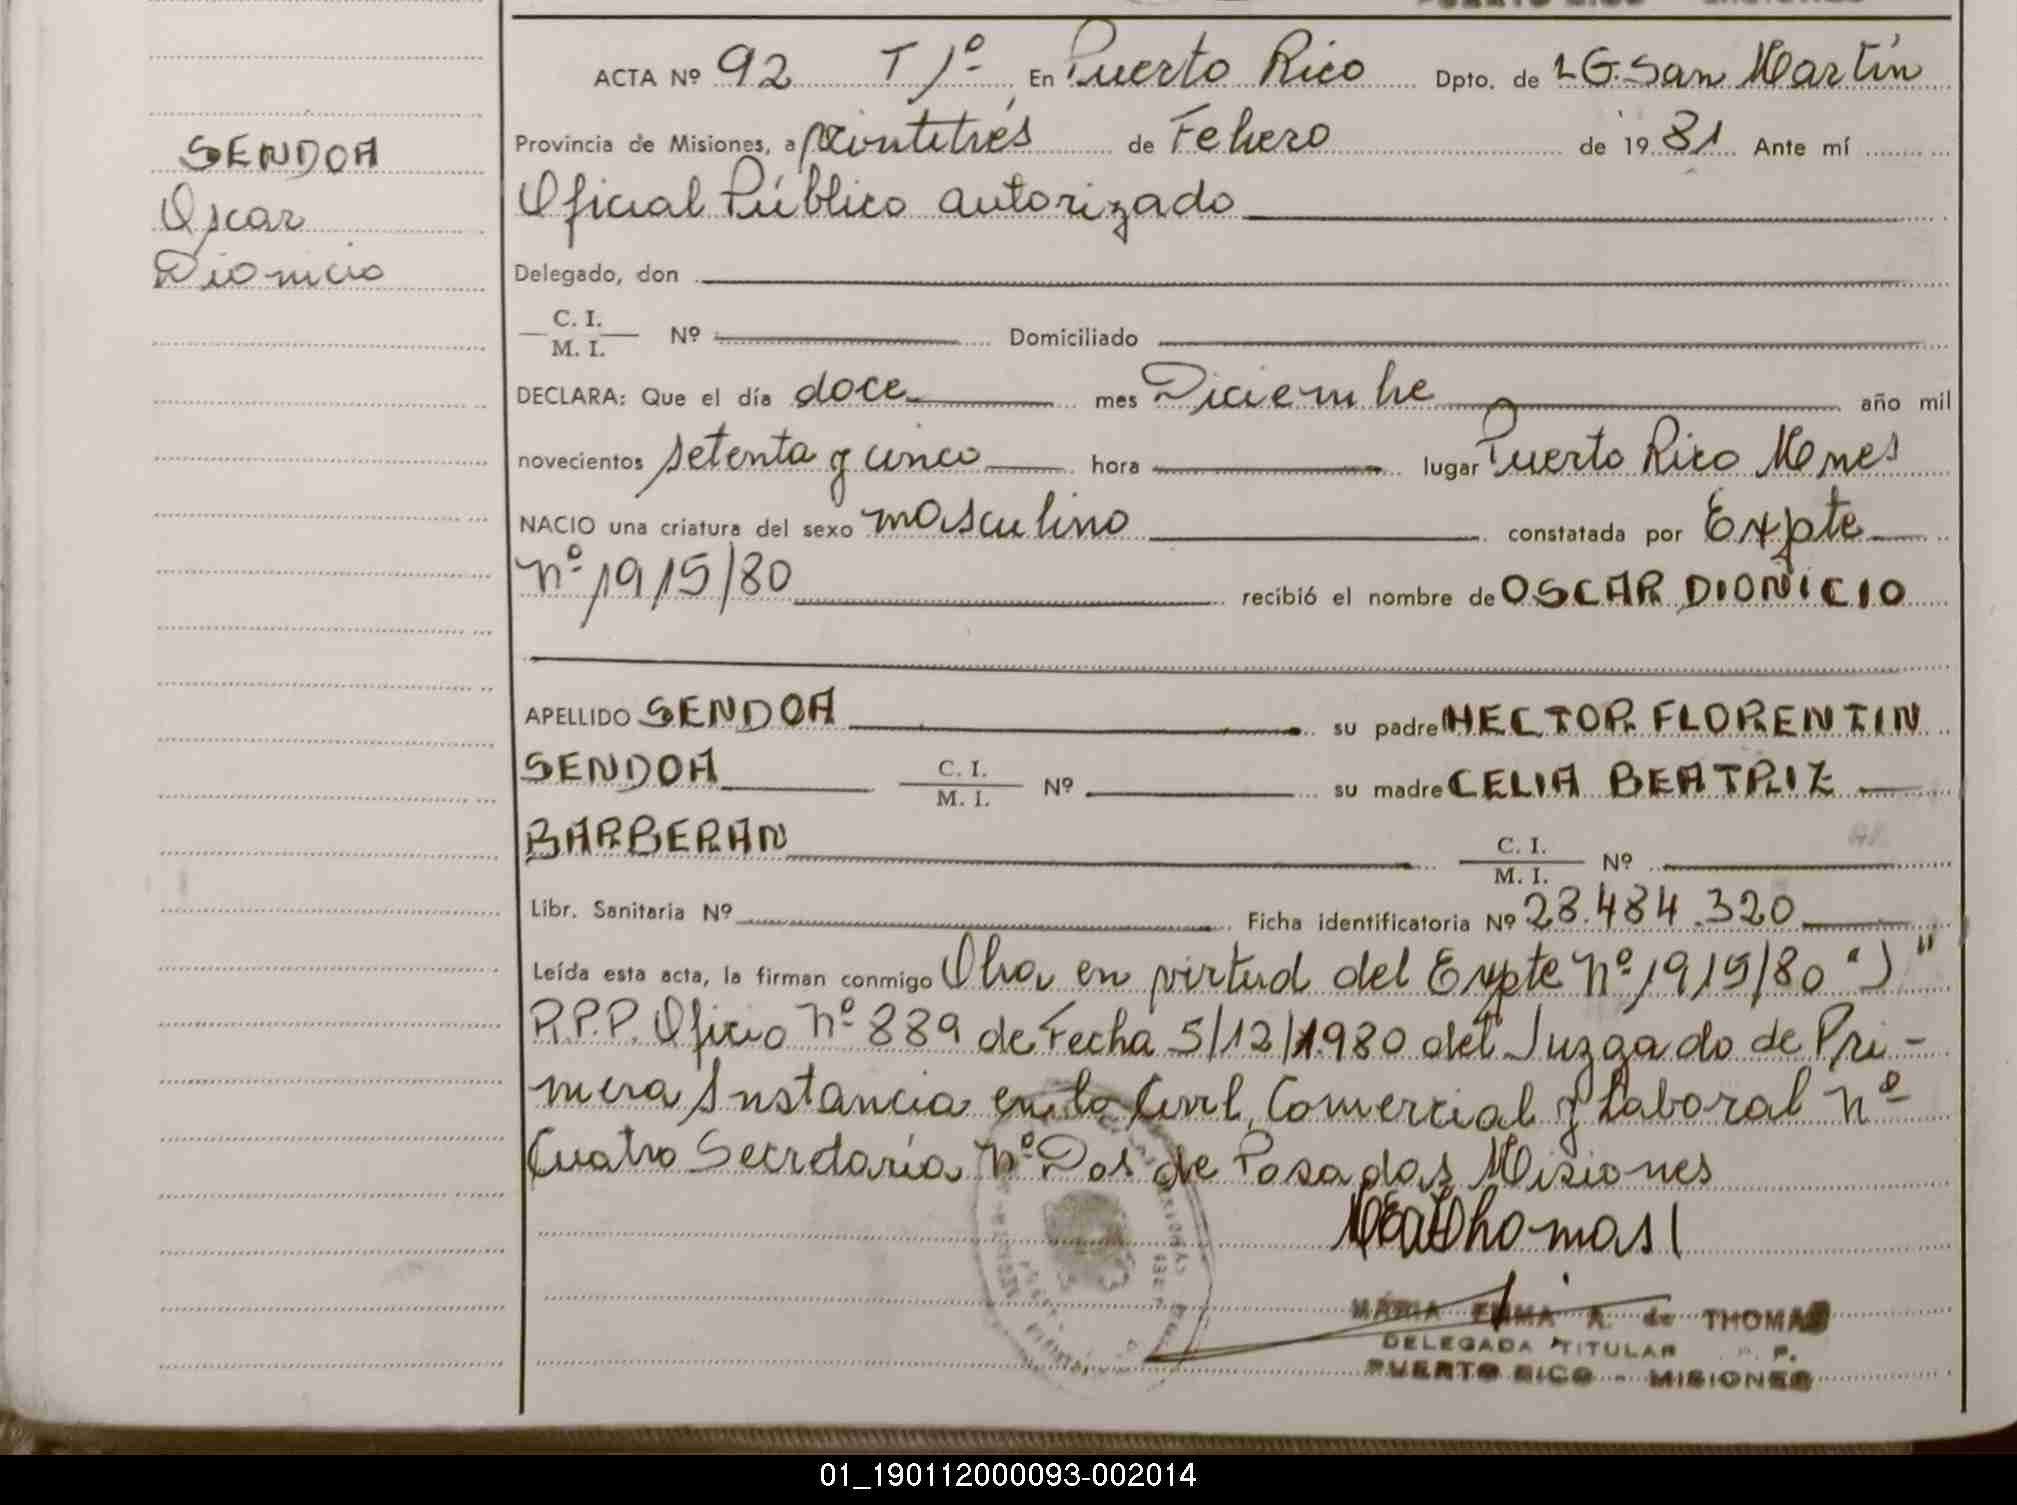 ACTA Nº 92 T 1º En Puerto Rico Dpto. de L G. San Martín
SENDOA
Oscar
Dionicio
Provincia de Misiones, a veintitrés de Febero de 19 81 Ante mí
Oficial Público autorizado
Delegado, don
C. I.
M. I. Nº Domiciliado
DECLARA: Que el día doce mes Diciembe año mil
novecientos setenta y cinco hora lugar Puerto Rico Mnes
NACIO una criatura del sexo masculino constatada por Expte
nº 1915/80 recibió el nombre de OSCAR DIONICIO
APELLIDO SENDOA su padre HECTOR FLORENTIN
SENDOA C. I. M. I. Nº su madre CELIA BEATRIZ
BARBERAN C. I. M. I. Nº
Libr. Sanitaria Nº Ficha identificatoria Nº 28.484.320
Leída esta acta, la firman conmigo Obra en virtud del Expte nº 1915/80 "J"
P.P.P. Oficio nº 889 de Fecha 5/12/1980 del Juzgado de Pri-
mera Instancia en lo Civil, Comercial y Laboral nº
Cuatro Secretaría nº Dos de Posadas Misiones
MARIA EMMA A. de THOMAS
DELEGADA TITULAR P. P.
PUERTO RICO - MISIONES
01_190112000093-002014